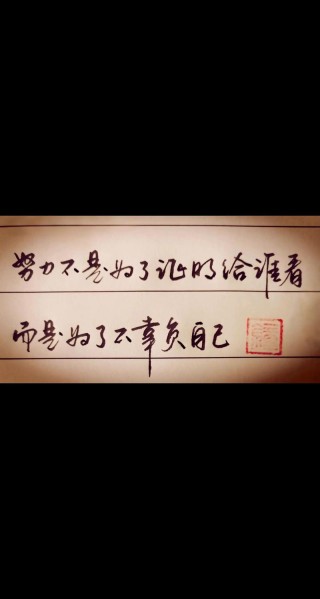 努力不是为了证明给谁看
而是为了不辜负自己